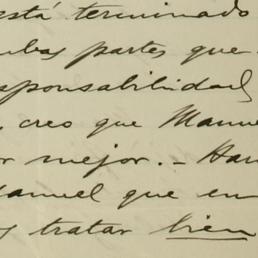 está terminado
partes que
responsabilidad
, creo que Manue
r mejor. - Han
Manuel que en
s tratar bien